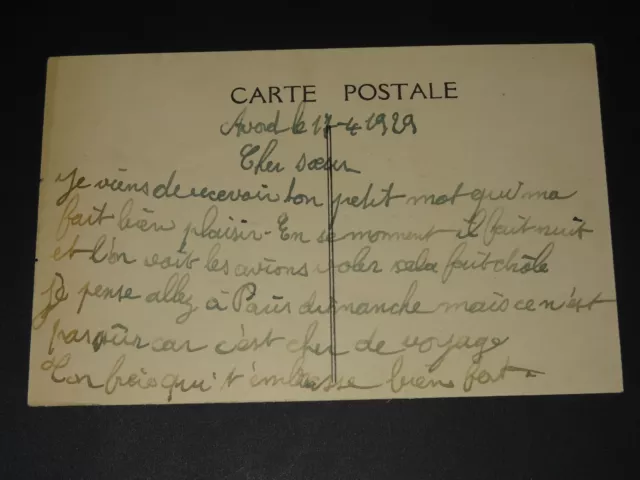 CARTE POSTALE
Avord le 17-4-1929
Cher sœur
Je viens de recevoir ton petit mot qui ma
fait bien plaisir - En se moment il fait nuit
et l'on voit les avions voler sela fait drôle
je pense allez à Paris dimanche mais ce n'est
pas sûr car c'est cher de voyage
Ton frère qui t'embrasse bien fort -